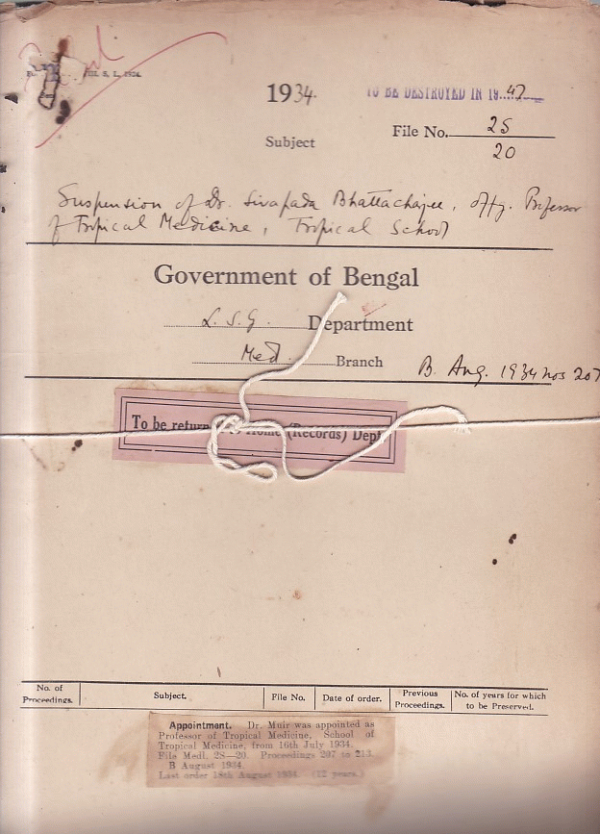 S. L. 1934.
1934.
TO BE DESTROYED IN 19..47
File No. 2S
20
Subject
Suspension of Dr. Sivapada Bhattacharjee, Offg. Professor
of Tropical Medicine, Tropical School
Government of Bengal
L. S. G. Department
Med. Branch
B. Aug. 1934 nos 207
To be return Home (Records) Dept
No. of Proceedings.
Subject.
File No.
Date of order.
Previous Proceedings.
No. of years for which to be Preserved.
Appointment. Dr. Muir was appointed as
Professor of Tropical Medicine, School of
Tropical Medicine, from 16th July 1934.
File Medl. 2S—20. Proceedings 207 to 213
B August 1934.
Last order 18th August 1934. (12 years.)